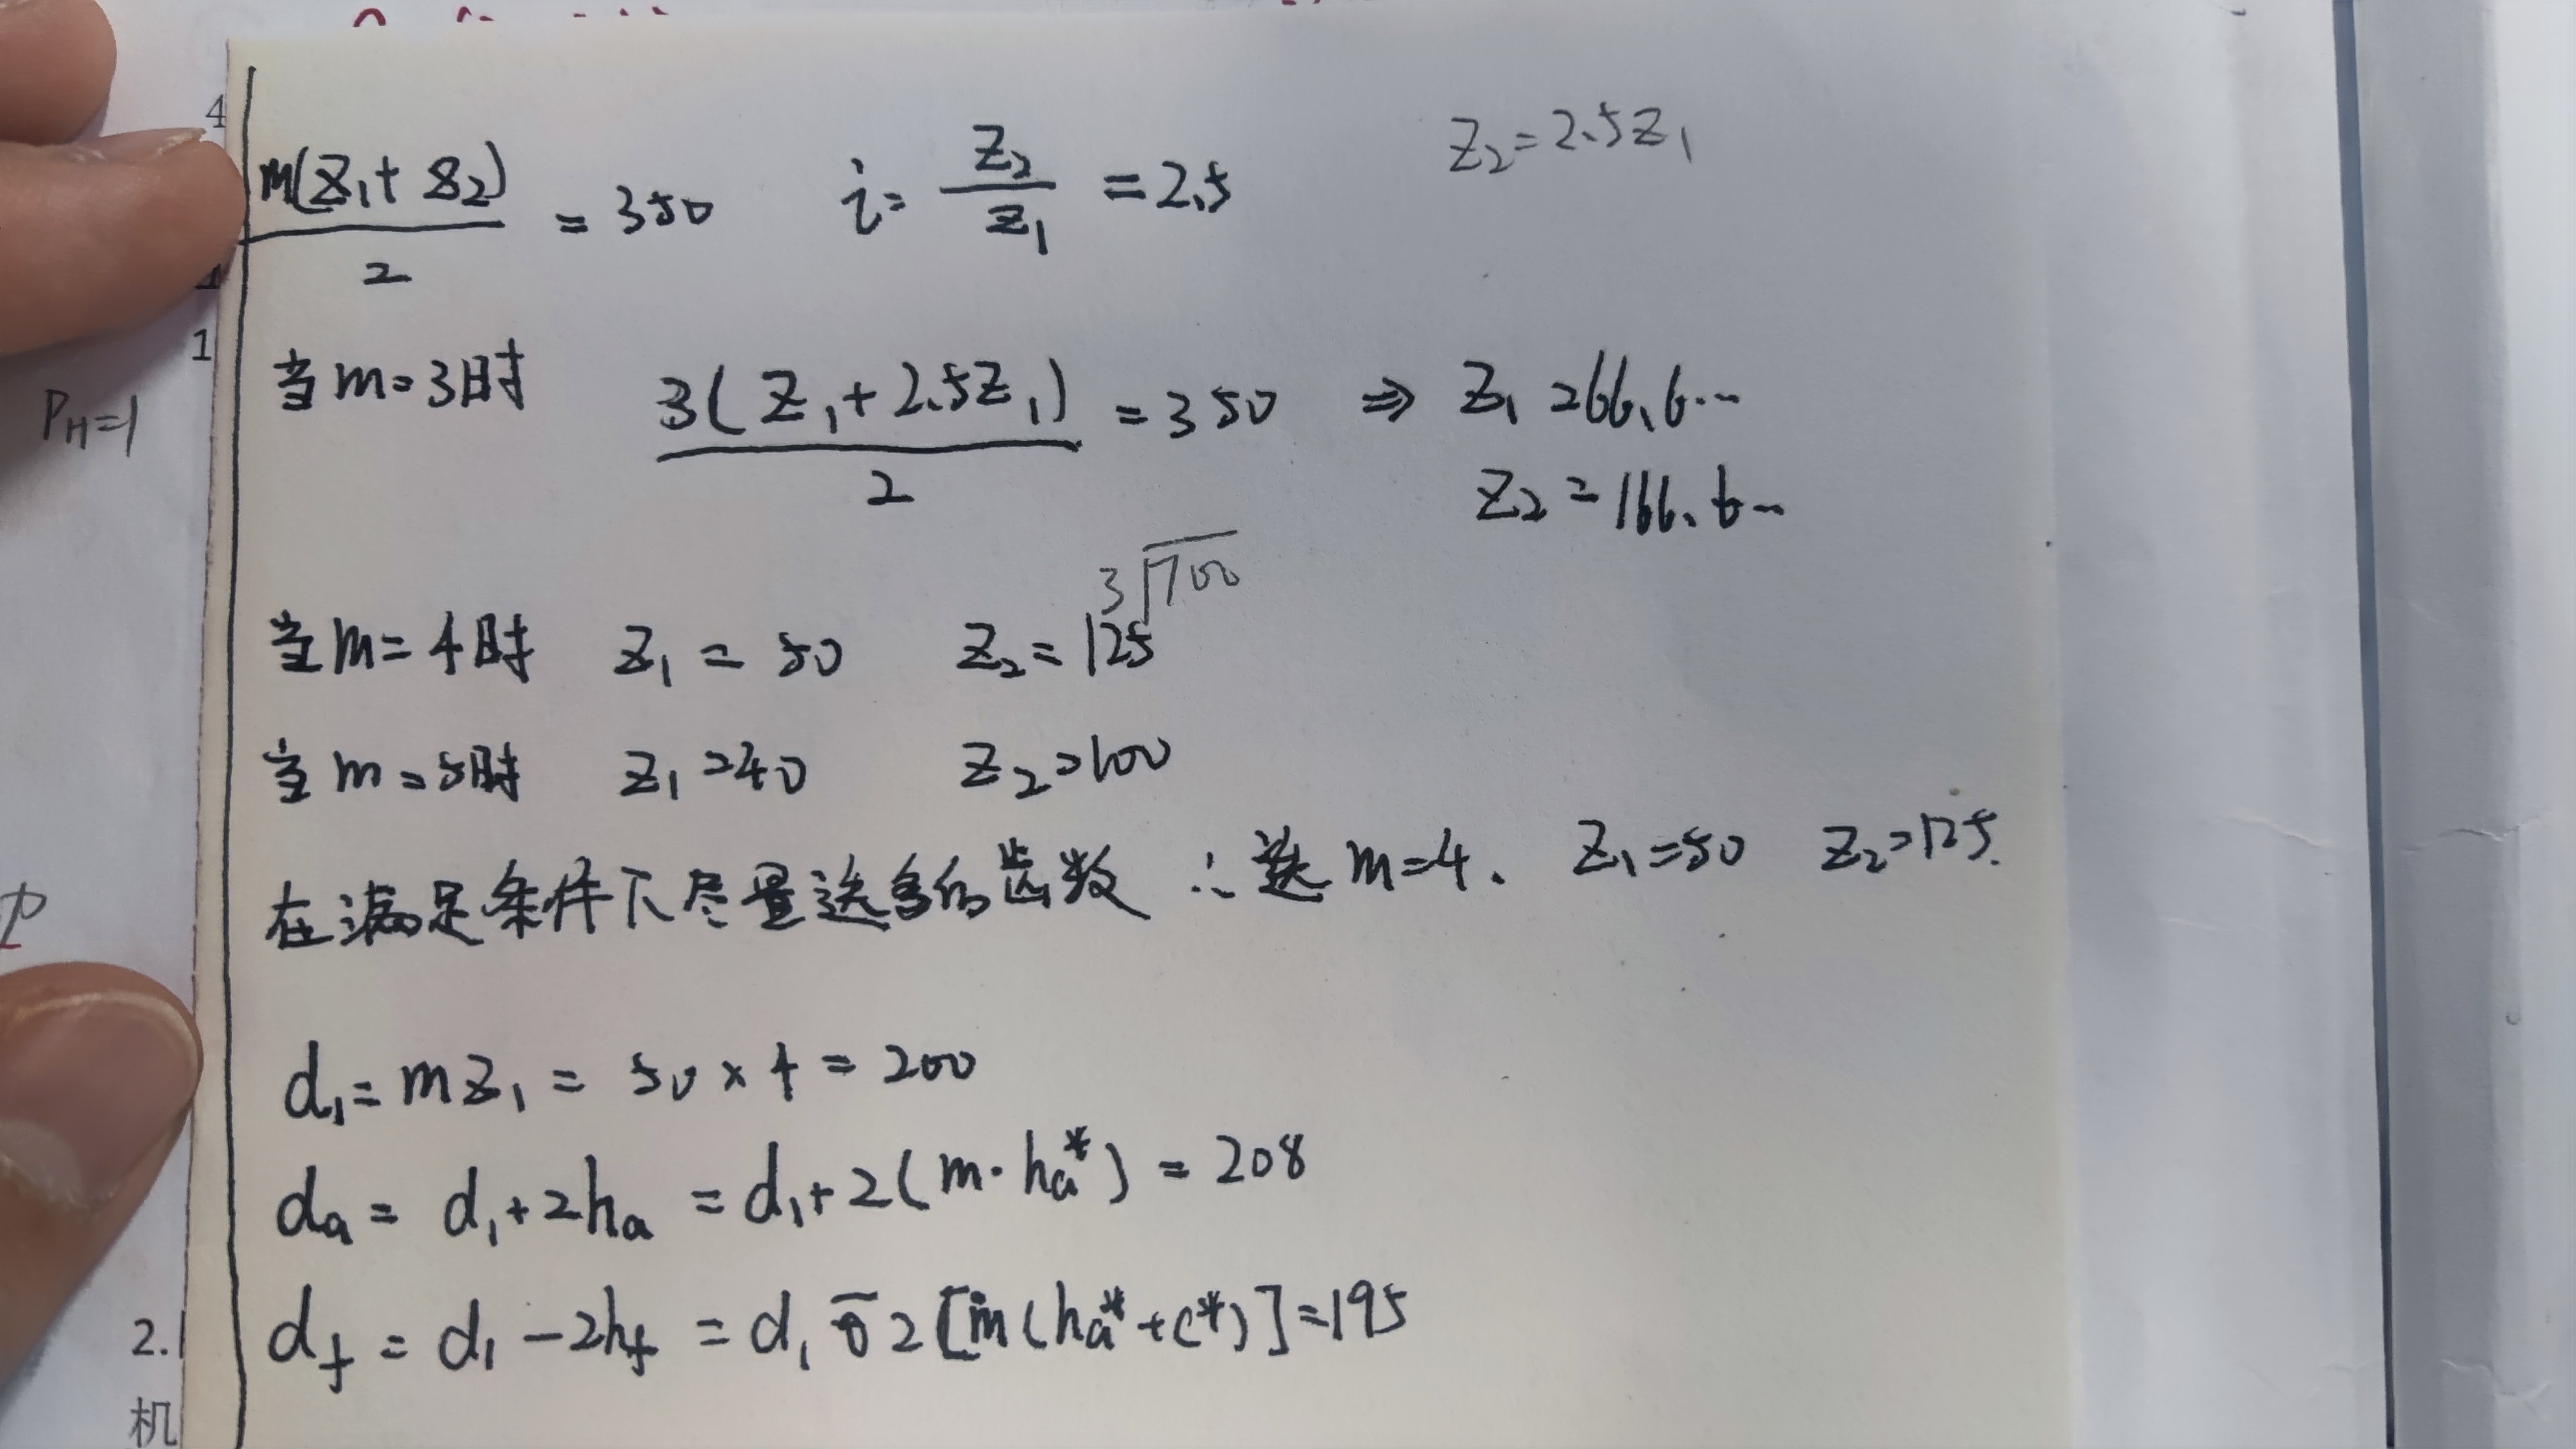 4
m(z₁+z₂)/2 = 350 i = z₂/z₁ = 2.5 z₂=2.5z₁
1
PH=1
当m=3时 3(z₁+2.5z₁)/2 = 350 ⇒ z₁=66.6…
z₂=166.6…
3√700
当m=4时 z₁=50 z₂=125
当m=5时 z₁=40 z₂=100
在满足条件下尽量选多的齿数 ∴选m=4. z₁=50 z₂=125.
d₁=mz₁=50×4=200
da=d₁+2ha=d₁+2(m·ha*)=208
df=d₁-2hf=d₁-2[m(ha*+c*)]=195
2.
机